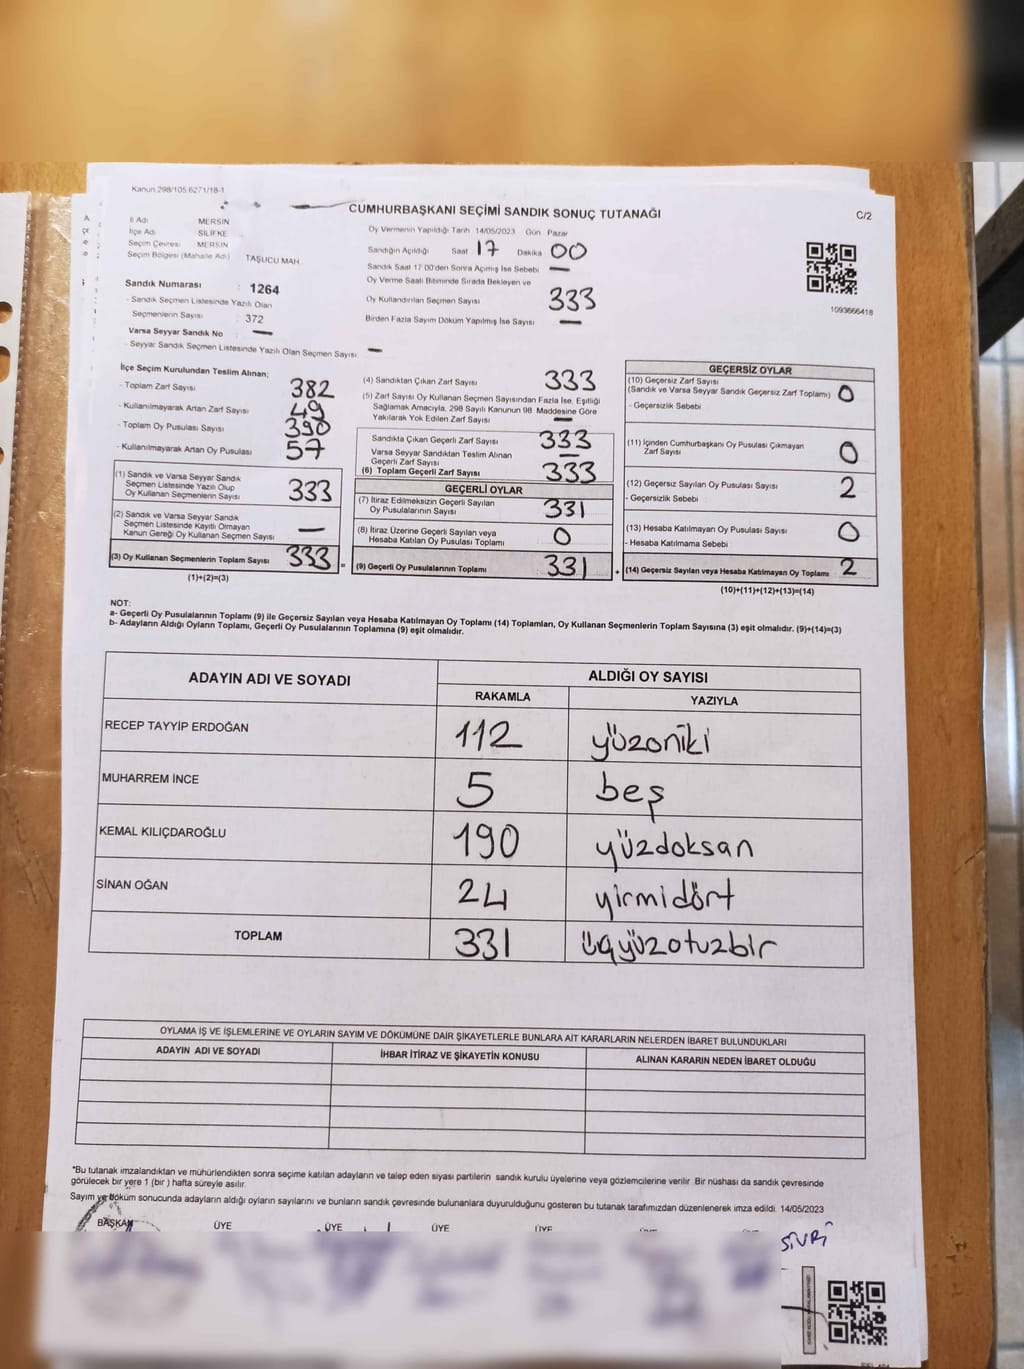 Kanun 298/105 6271/18-1
CUMHURBAŞKANI SEÇİMİ SANDIK SONUÇ TUTANAĞI
C/2
İl Adı MERSİN
İlçe Adı SİLİFKE
Seçim Çevresi MERSİN
Seçim Bölgesi (Mahalle Adı) TAŞUCU MAH
Sandık Numarası : 1264
- Sandık Seçmen Listesinde Yazılı Olan
Seçmenlerin Sayısı : 372
Varsa Seyyar Sandık No : —
- Seyyar Sandık Seçmen Listesinde Yazılı Olan Seçmen Sayısı —
Oy Vermenin Yapıldığı Tarih 14/05/2023 Gün Pazar
Sandığın Açıldığı Saat 17 Dakika 00
Sandık Saat 17 00'den Sonra Açımış İse Sebebi —
Oy Verme Saati Bitiminde Sırada Bekleyen ve
Oy Kullandırılan Seçmen Sayısı 333
Birden Fazla Sayım Döküm Yapılmış İse Sayısı —
1093666418
İlçe Seçim Kurulundan Teslim Alınan;
- Toplam Zarf Sayısı 382
- Kullanılmayarak Artan Zarf Sayısı 49
- Toplam Oy Pusulası Sayısı 390
- Kullanılmayarak Artan Oy Pusulası 57
(1) Sandık ve Varsa Seyyar Sandık
Seçmen Listesinde Yazılı Olup
Oy Kullanan Seçmenlerin Sayısı 333
(2) Sandık ve Varsa Seyyar Sandık
Seçmen Listesinde Kayıtlı Olmayan
Kanun Gereği Oy Kullanan Seçmen Sayısı —
(3) Oy Kullanan Seçmenlerin Toplam Sayısı 333 =
(1)+(2)=(3)
(4) Sandıktan Çıkan Zarf Sayısı 333
(5) Zarf Sayısı Oy Kullanan Seçmen Sayısından Fazla İse, Eşitliği
Sağlamak Amacıyla, 298 Sayılı Kanunun 98 Maddesine Göre
Yakılarak Yok Edilen Zarf Sayısı —
Sandıkta Çıkan Geçerli Zarf Sayısı 333
Varsa Seyyar Sandıktan Teslim Alınan
Geçerli Zarf Sayısı —
(6) Toplam Geçerli Zarf Sayısı 333
GEÇERLİ OYLAR
(7) İtiraz Edilmeksizin Geçerli Sayılan
Oy Pusulalarının Sayısı 331
(8) İtiraz Üzerine Geçerli Sayılan veya
Hesaba Katılan Oy Pusulası Toplamı 0
(9) Geçerli Oy Pusulalarının Toplamı 331 +
GEÇERSİZ OYLAR
(10) Geçersiz Zarf Sayısı
(Sandık ve Varsa Seyyar Sandık Geçersiz Zarf Toplamı) 0
- Geçersizlik Sebebi
(11) İçinden Cumhurbaşkanı Oy Pusulası Çıkmayan
Zarf Sayısı 0
(12) Geçersiz Sayılan Oy Pusulası Sayısı 2
- Geçersizlik Sebebi
(13) Hesaba Katılmayan Oy Pusulası Sayısı 0
- Hesaba Katılmama Sebebi
(14) Geçersiz Sayılan veya Hesaba Katılmayan Oy Toplamı 2
(10)+(11)+(12)+(13)=(14)
NOT:
a- Geçerli Oy Pusulalarının Toplamı (9) ile Geçersiz Sayılan veya Hesaba Katılmayan Oy Toplamı (14) Toplamları, Oy Kullanan Seçmenlerin Toplam Sayısına (3) eşit olmalıdır. (9)+(14)=(3)
b- Adayların Aldığı Oyların Toplamı, Geçerli Oy Pusulalarının Toplamına (9) eşit olmalıdır.
ADAYIN ADI VE SOYADI ALDIĞI OY SAYISI
RAKAMLA YAZIYLA
RECEP TAYYİP ERDOĞAN 112 yüzoniki
MUHARREM İNCE 5 beş
KEMAL KILIÇDAROĞLU 190 yüzdoksan
SİNAN OĞAN 24 yirmidört
TOPLAM 331 üçyüzotuzbir
OYLAMA İŞ VE İŞLEMLERİNE VE OYLARIN SAYIM VE DÖKÜMÜNE DAİR ŞİKAYETLERLE BUNLARA AİT KARARLARIN NELERDEN İBARET BULUNDUKLARI
ADAYIN ADI VE SOYADI İHBAR İTİRAZ VE ŞİKAYETİN KONUSU ALINAN KARARIN NEDEN İBARET OLDUĞU
*Bu tutanak imzalandıktan ve mühürlendikten sonra seçime katılan adayların ve talep eden siyasi partilerin sandık kurulu üyelerine veya gözlemcilerine verilir Bir nüshası da sandık çevresinde
görülecek bir yere 1 (bir ) hafta süreyle asılır.
Sayım ve döküm sonucunda adayların aldığı oyların sayılarını ve bunların sandık çevresinde bulunanlara duyurulduğunu gösteren bu tutanak tarafımızdan düzenlenerek imza edildi. 14/05/2023
BAŞKAN ÜYE ÜYE ÜYE ÜYE
SİVRİ